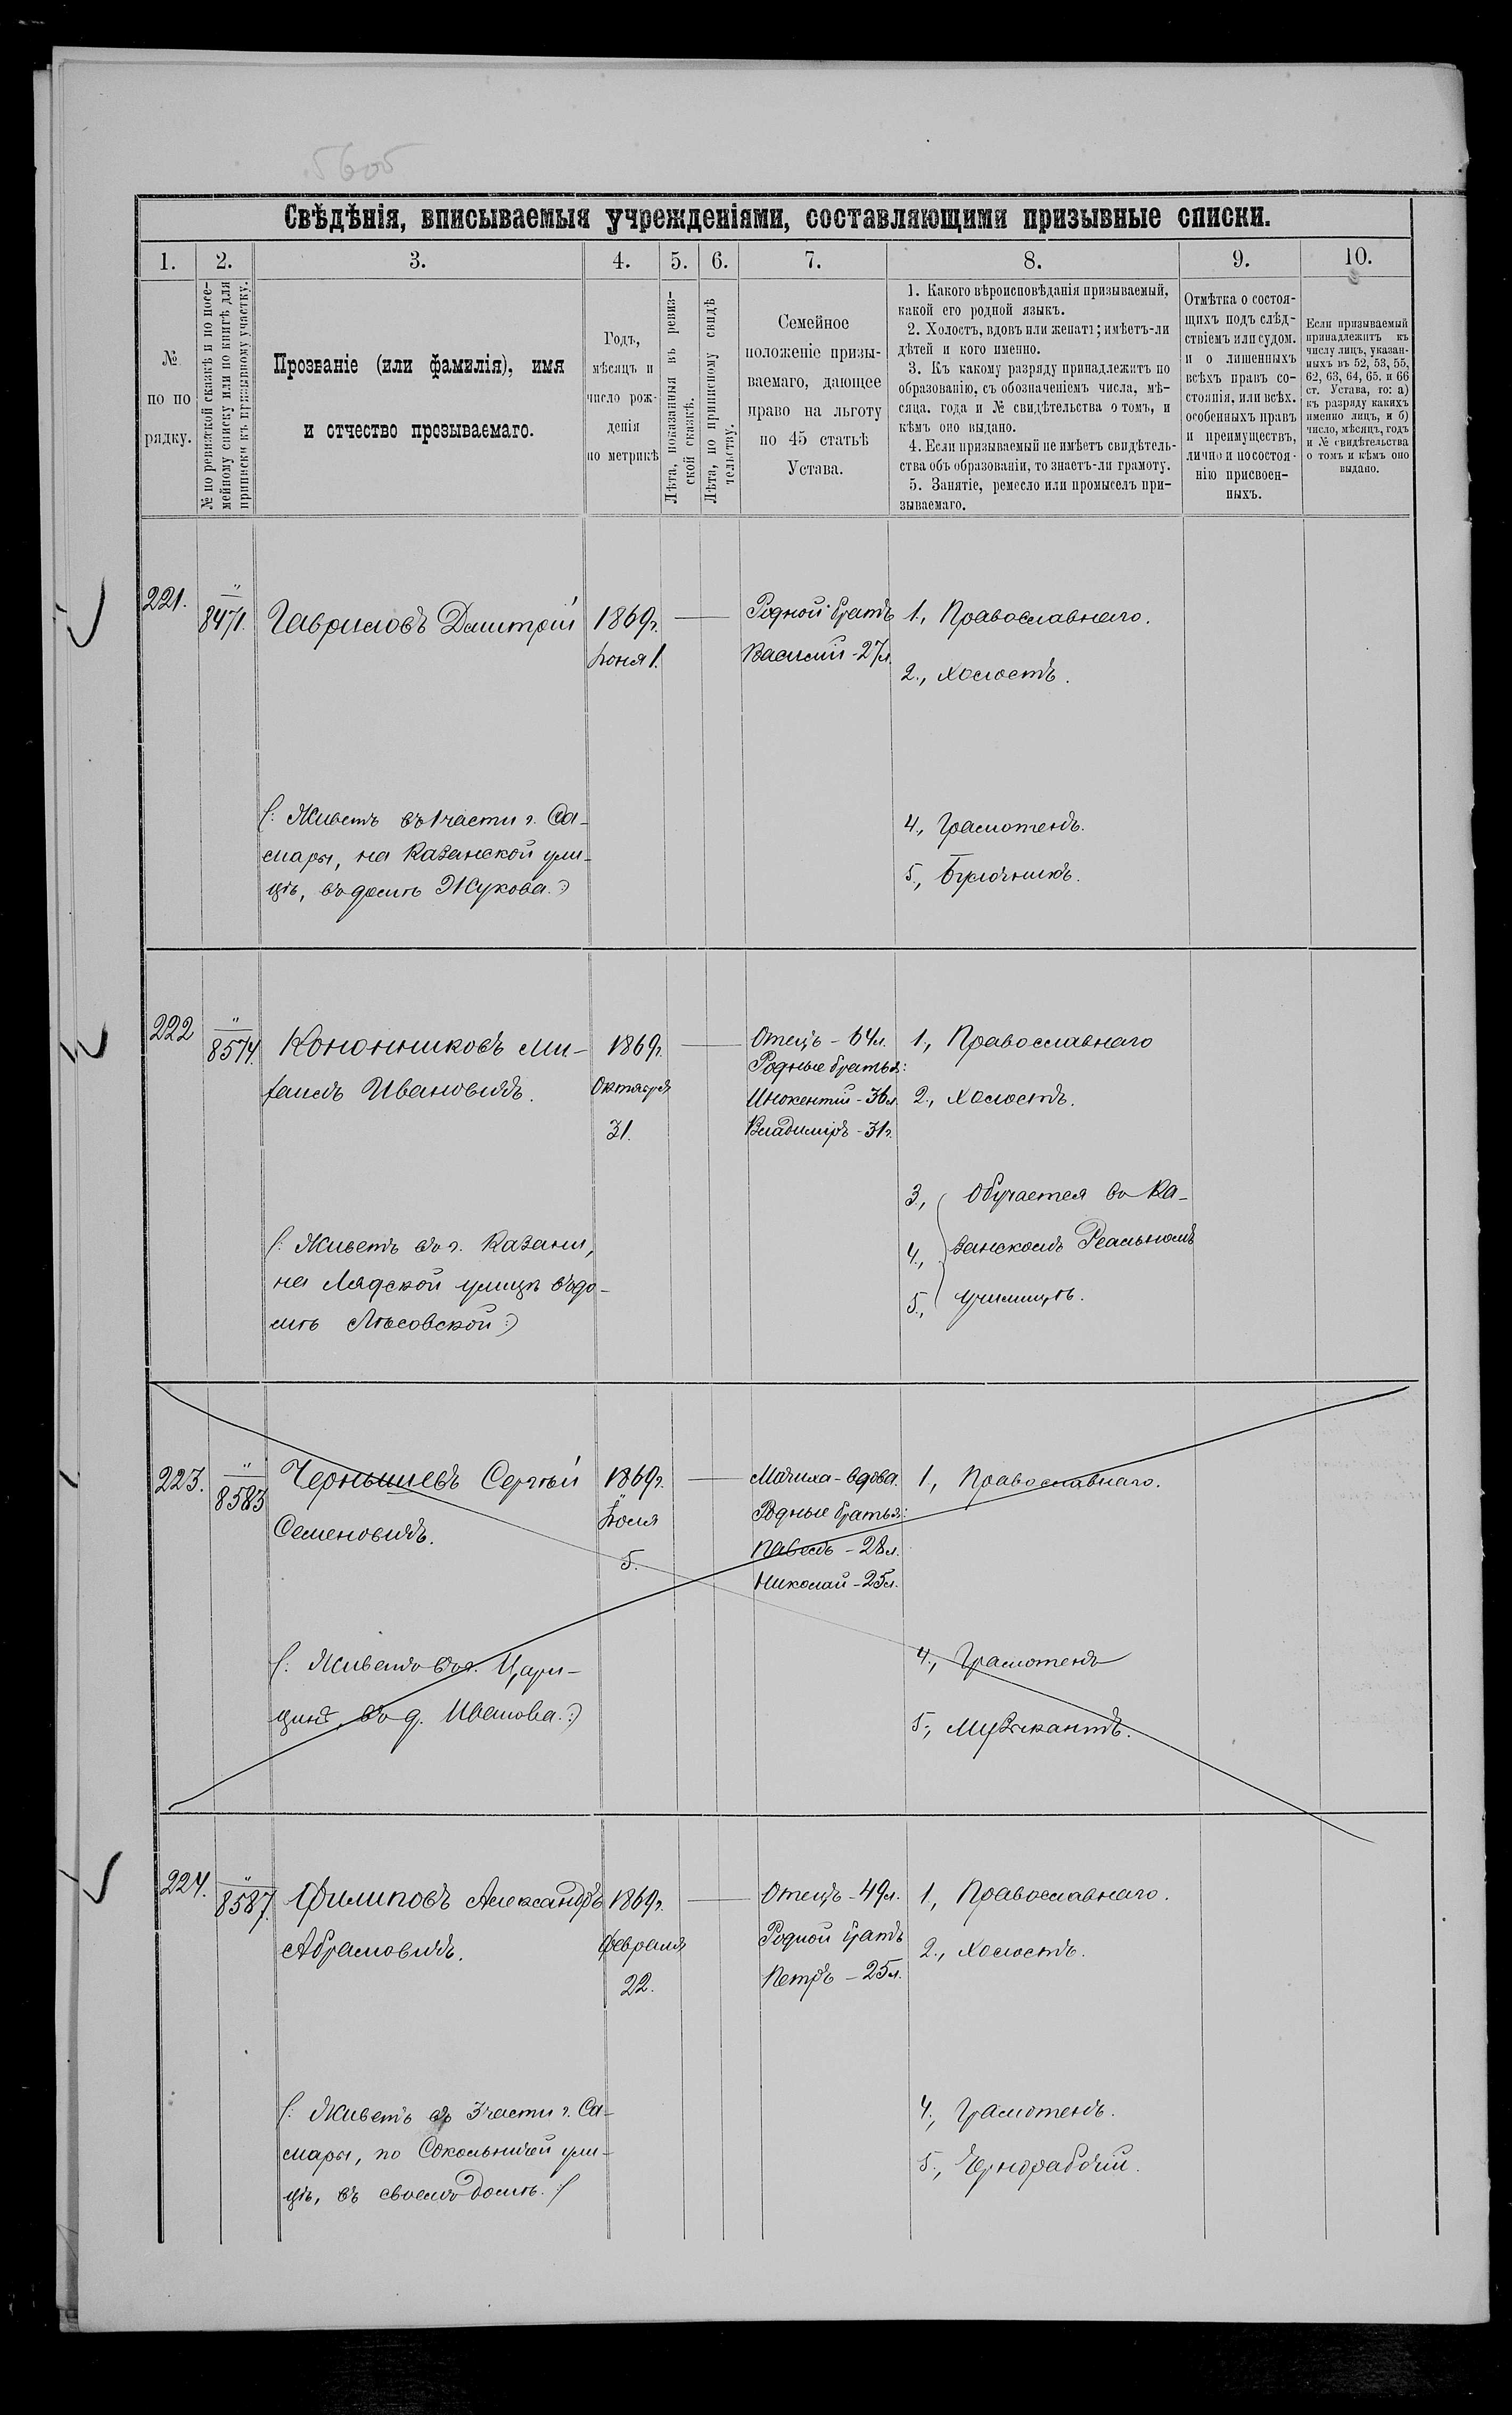 5605
Свѣдѣнія, вписываемыя учрежденіями, составляющими призывные списки.
1. 2. 3. 4. 5. 6. 7. 8. 9. 10.
№
по по
рядку.
№ по ревизской сказкѣ и по посе-
мейному списку или по книгѣ для
приписки къ призывному участку.
Прозваніе (или фамилія), имя
и отчество прозываемаго.
Годъ,
мѣсяцъ и
число рож-
денія
по метрикѣ
Лѣта, показанныя въ ревиз-
ской сказкѣ.
Лѣта, по приписному свидѣ
тельству.
Семейное
положеніе призы-
ваемаго, дающее
право на льготу
по 45 статьѣ
Устава.
1. Какого вѣроисповѣданія призываемый,
какой его родной языкъ.
2. Холостъ, вдовъ или женатъ; имѣетъ-ли
дѣтей и кого именно.
3. Къ какому разряду принадлежитъ по
образованію, съ обозначеніемъ числа, мѣ-
сяца, года и № свидѣтельства о томъ, и
кѣмъ оно выдано.
4. Если призываемый не имѣетъ свидѣтель-
ства объ образованіи, то знаетъ-ли грамоту.
5. Занятіе, ремесло или промыселъ при-
зываемаго.
Отмѣтка о состоя-
щихъ подъ слѣд-
ствіемъ или судом.
и о лишенныхъ
всѣхъ правъ со-
стоянія, или всѣх.
особенныхъ правъ
и преимуществъ,
лично и по состоя-
нію присвоен-
ныхъ.
Если призываемый
принадлежитъ къ
числу лицъ, указан-
ныхъ въ 52, 53, 55,
62, 63, 64, 65. и 66
ст. Устава, то: а)
къ разряду какихъ
именно лицъ, и б)
число, мѣсяцъ, годъ
и № свидѣтельства
о томъ и кѣмъ оно
выдано.
221. " 8471. Гавриловъ Дмитрій 1869г. Родной братъ 1., Православнаго.
Іюня 1. Василій - 27л.
2., Холостъ.
(: Живетъ въ 1 части г. Са-
мары, на Казанской ули-
цѣ, въ домѣ Жукова. :)
4., Грамотенъ.
5., Булочникъ.
222 " 8574. Кононниковъ Ми-
хаилъ Ивановичъ.
1869г.
Октября
31.
Отецъ - 64л.
Родные братья:
Инокентій - 36л.
Владиміръ - 31г.
1., Православнаго
2., Холостъ.
3., Обучается въ Ка-
4., занскомъ Реальномъ
5., Училищѣ.
(: Живетъ въ г. Казани,
на Лядской улицѣ въ до-
мѣ Лѣсовской :)
223. " 8583 Чернышевъ Сергѣй
Семеновичъ.
1869г.
Іюля
5.
Мачиха - вдова.
Родные братья:
Павелъ - 28л.
Николай - 25л.
1., Православнаго.
(: Живетъ въ г. Цари-
цынѣ, въ д. Иванова. :)
4., Грамотенъ
5., Музыкантъ.
224. " 8587. Филиповъ Александръ
Абрамовичъ.
1869г.
Февраля
22.
Отецъ - 49л.
Родной братъ
Петръ - 25л.
1., Православнаго.
2., Холостъ.
(: Живетъ въ 3 части г. Са-
мары, по Сокольничей ули-
цѣ, въ своемъ домѣ. :)
4., Грамотенъ.
5., Чернорабочій.